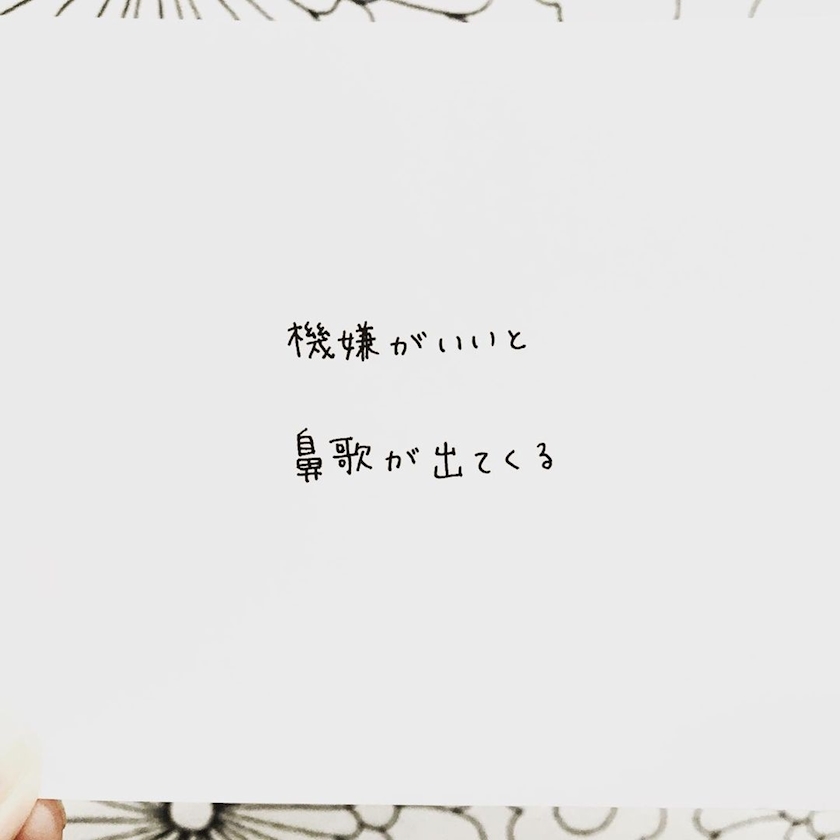 機嫌がいいと
鼻歌が出てくる